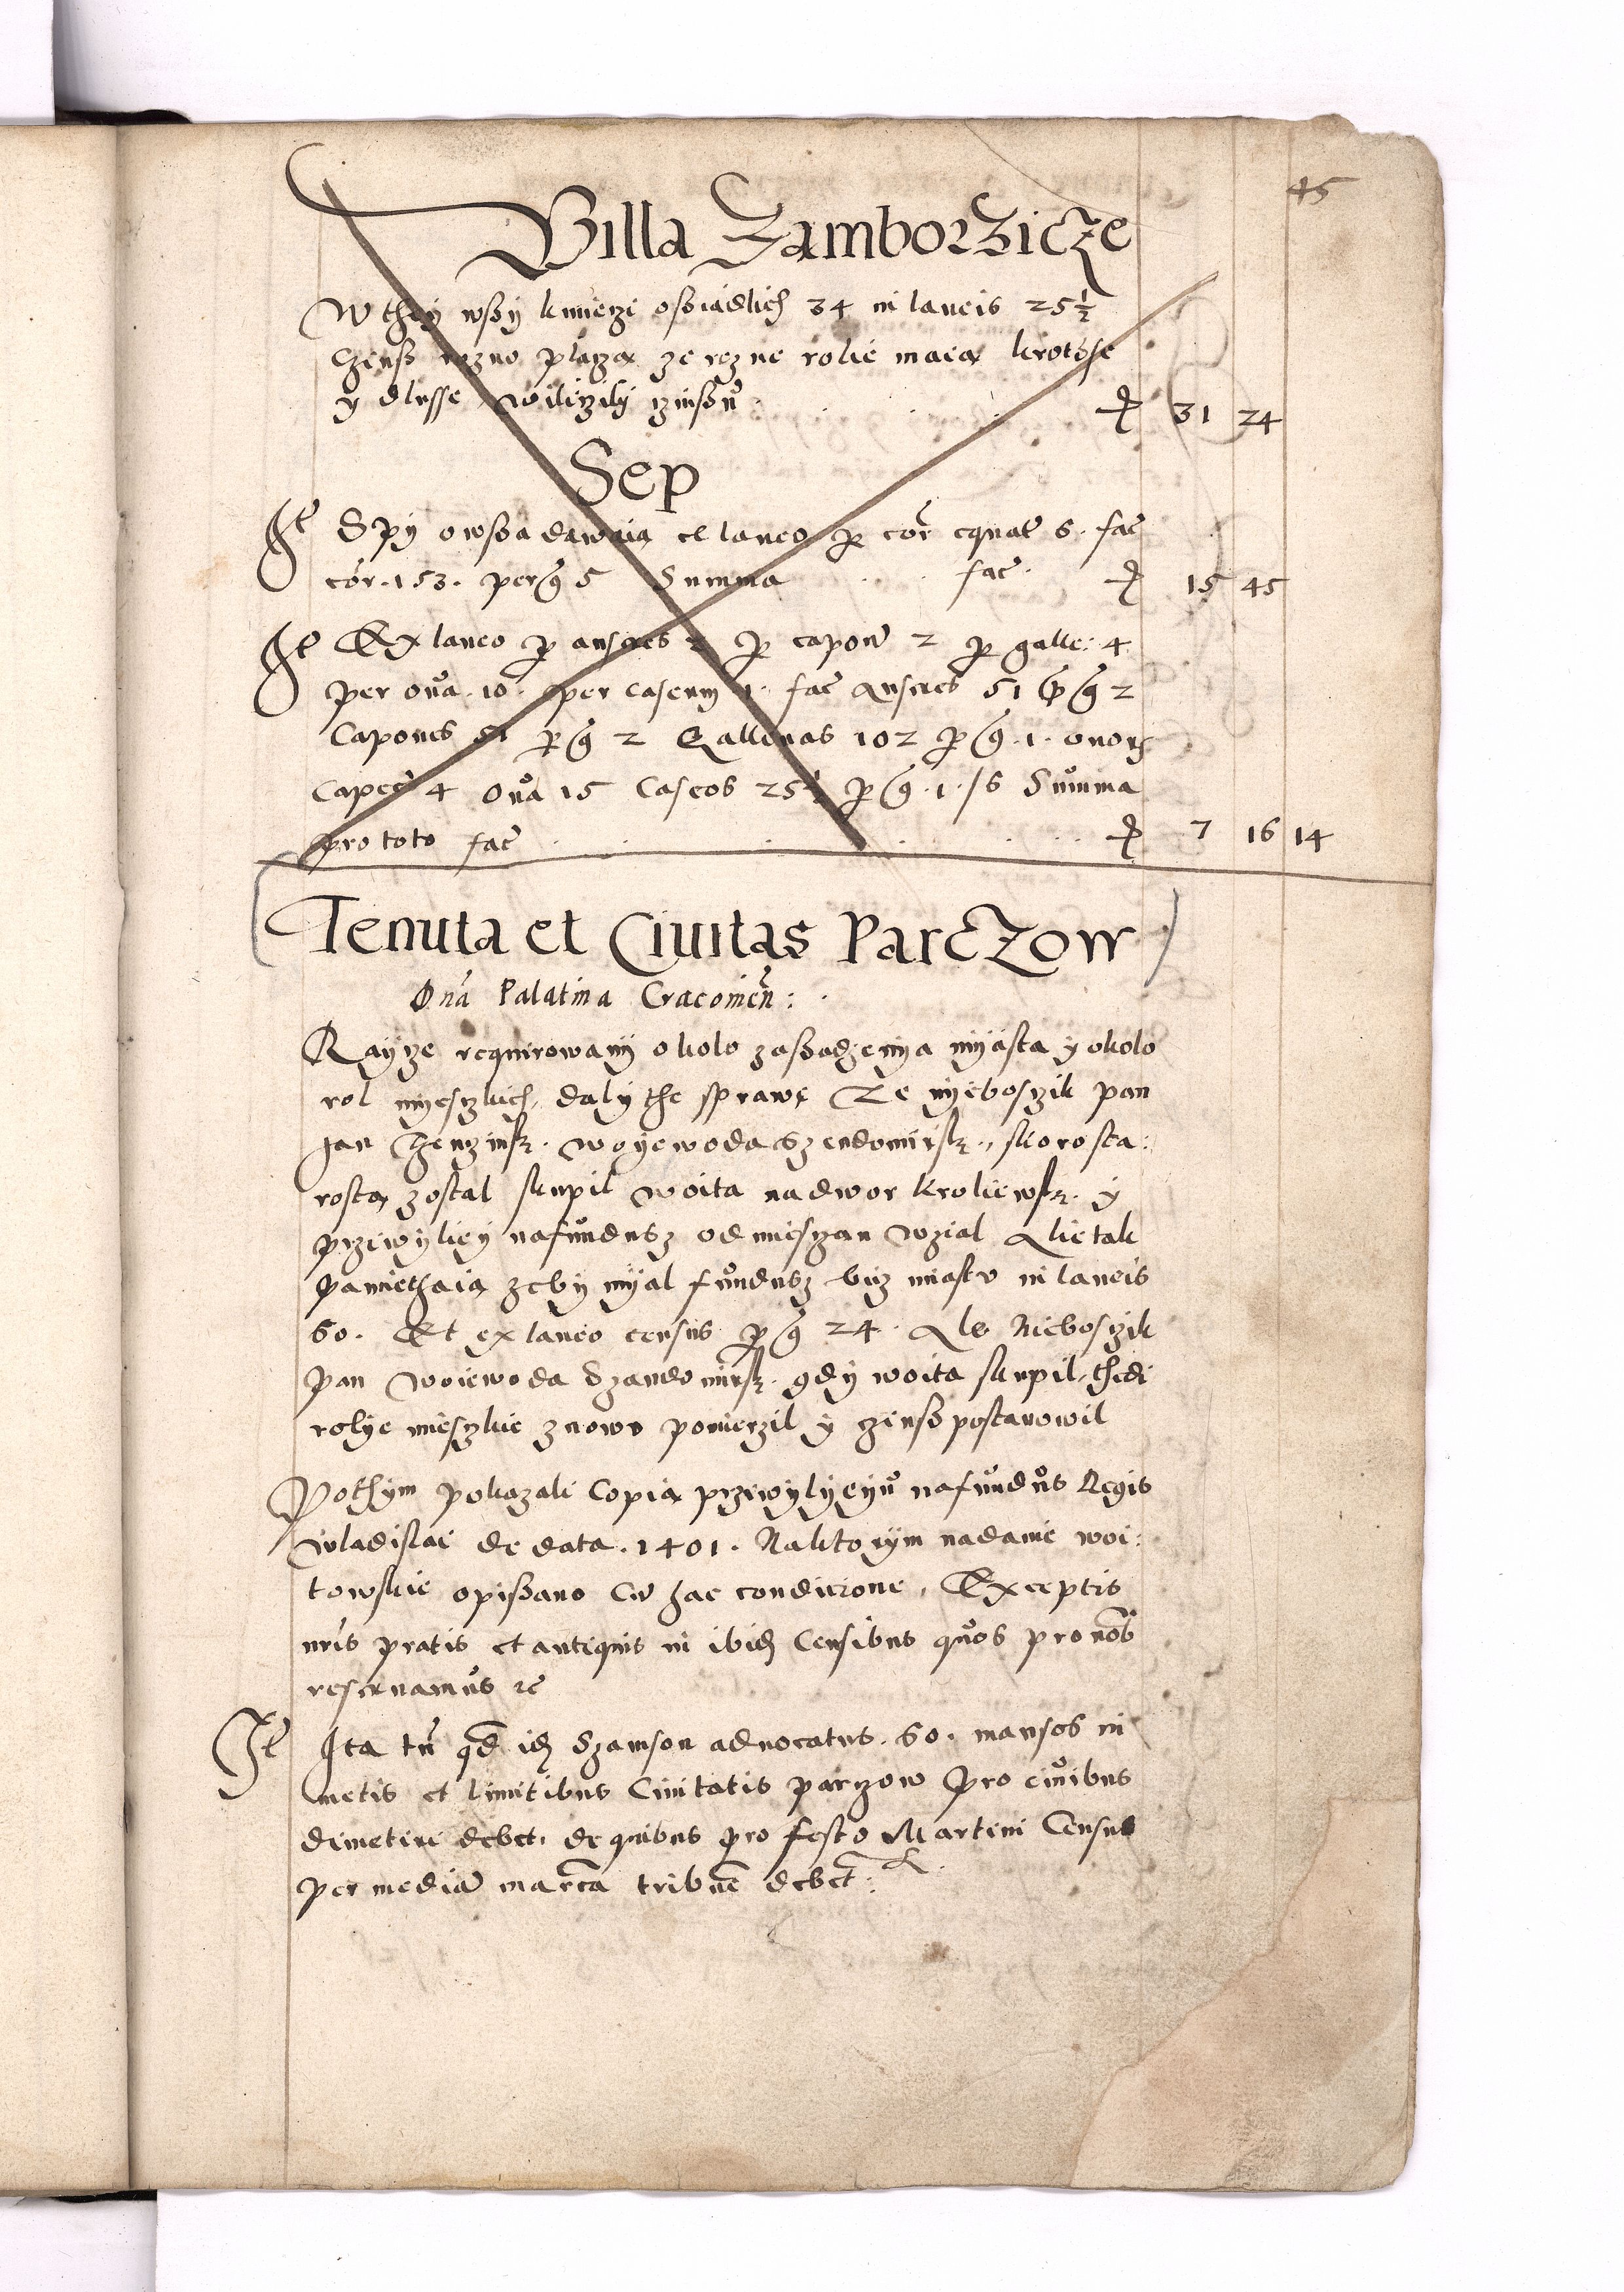 45
Villa Zamborzicze
W they wsßy kmieczi oßiadlich 34 in laneis 25½
Czensß rozno placza ze rozne rolie maia krotsse
y dlusse wiliczily czinßu fl 31 24
Sep
It Sspy owsßa dawaia ex laneo per cor equat 6. fac
cor. 153. per g 5 Summa fac. fl 15 45
It Ex laneo per anseres 2 per capon 2 per galle: 4
per oua. 10. per caseum 1. fac anseres 51 per g 2
Capones 51 per g 2 Gallinas 102 per g. 1. ouorum
capec 4 oua 15 Caseos 25½ per g. 1. /6 Summa
pro toto fac fl 7 16 14
Tenuta et Ciuitas Parczow
Dna Palatina Cracouien:
Raycze requirowany okolo zaßadzenya myasta y okolo
rol myesczkich, daly the sprawe Ze nyeboszik pan
Jan Thenczinsk. woyewoda Szendomirsk., skoro sta:
rosta zostal skupil woita na dwor kroliewsk. y
przewyliey na fundusz od miesczan wzial Alie tak
pamiethaia zeby myal fundusz bicz miastu in laneis
60. Et ex laneo census per g 24. Ale Nieboszik
pan woiewoda Szandomirsk. gdy woita skupil, thedi
rolye miesczkie znowo pomierzil y czensß postanowil
Pothym pokazali Copia przewylyeyu na fundus Regis
wladislai de data. 1401. Na ktorym nadanie woi:
towskie opißano Cu hac condicione, Exceptis
nris pratis et antiquis in ibid Censibus quos pro nob
reseruamus etc
It Ita tn qd id Szamson aduocatus. 60. mansos in
metis et limitibus Ciuitatis parczow pro ciuibus
dimetiri debet, de quibus pro festo Martini Census
per media marca tribue debet: